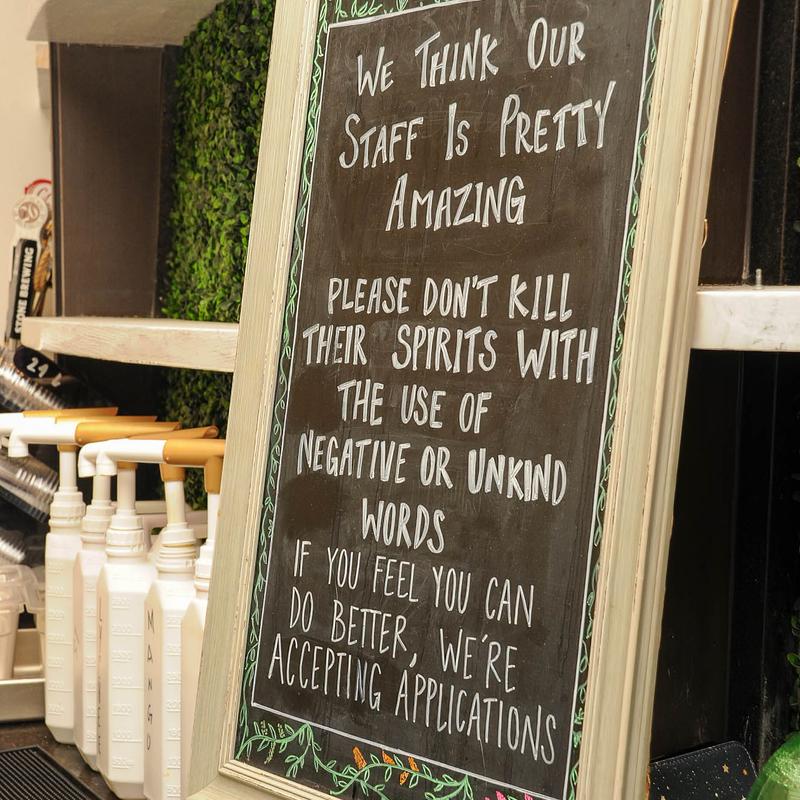 We Think Our
Staff Is Pretty
Amazing
PLEASE DON'T KILL
THEIR SPIRITS WITH
THE USE OF
NEGATIVE OR UNKIND
WORDS
IF YOU FEEL YOU CAN
DO BETTER, WE'RE
ACCEPTING APPLICATIONS
STONE BREWING
24
MANGO